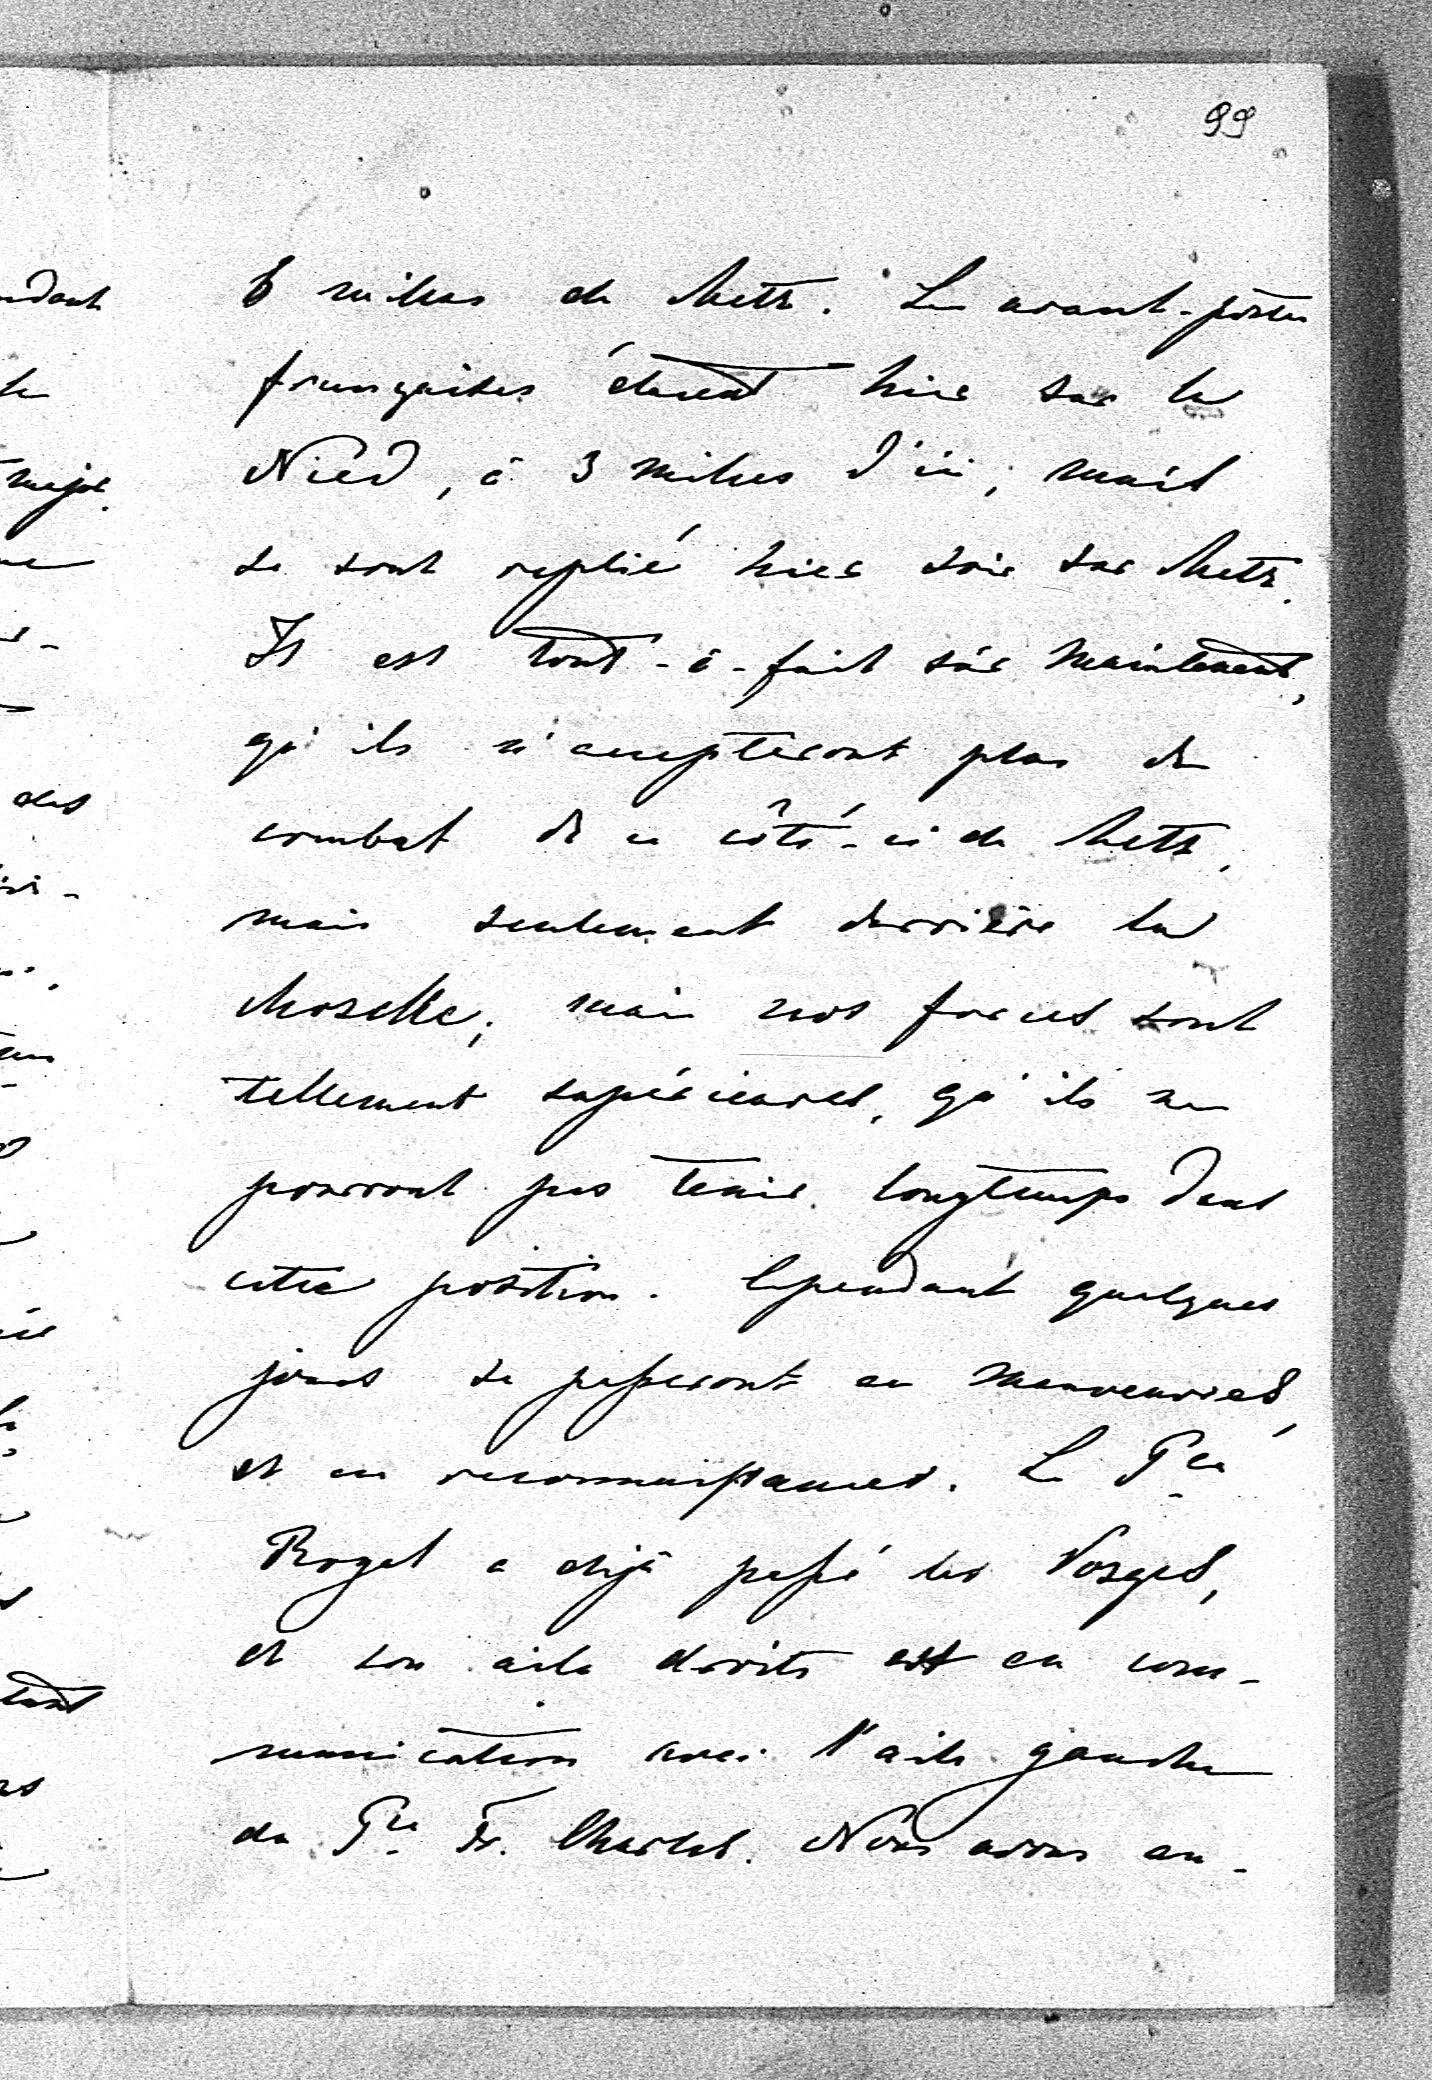 99
6 milles de Metz. Les avant-postes
françaises étaient hier sur la
Nied, à 3 milles d'ici; mais
se sont replié hier soir sur Metz.
Il est tout-à-fait sûr maintenant,
qu'ils n'accepteront plus de
combat de ce côté-ci de Metz,
mais seulement derrière la
Moselle; mais nos forces sont
tellement supérieures, qu'ils ne
pourront pas tenir longtemps dans
cette position. Cependant quelques
jours se passeront en manœuvres,
et en reconnaissances. Le Pce
Royal a déjà passé les Vosges,
et son aile droite est en com-
munication avec l'aile gauche
du Pce Fr. Charles. Nous avons en-